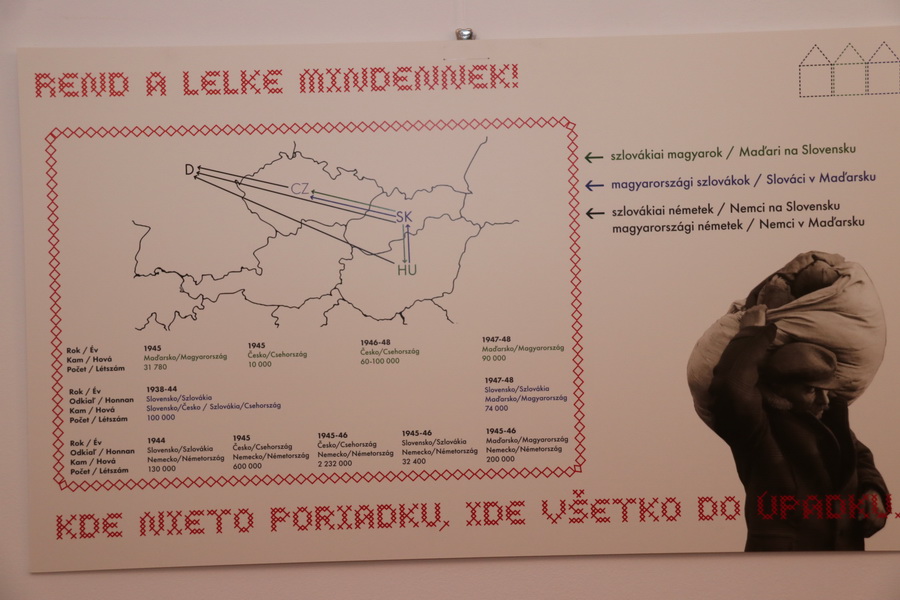 REND A LELKE MINDENNEK!
← szlovákiai magyarok / Maďari na Slovensku
← magyarországi szlovákok / Slováci v Maďarsku
← szlovákiai németek / Nemci na Slovensku
magyarországi németek / Nemci v Maďarsku
D
CZ
SK
HU
Rok / Év
Kam / Hová
Počet / Létszám
1945
Maďarsko/Magyarország
31 780
1945
Česko/Csehország
10 000
1946-48
Česko/Csehország
60-100 000
1947-48
Maďarsko/Magyarország
90 000
Rok / Év
Odkiaľ / Honnan
Kam / Hová
Počet / Létszám
1938-44
Slovensko/Szlovákia
Slovensko/Česko / Szlovákia/Csehország
100 000
1947-48
Slovensko/Szlovákia
Maďarsko/Magyarország
74 000
Rok / Év
Odkiaľ / Honnan
Kam / Hová
Počet / Létszám
1944
Slovensko/Szlovákia
Nemecko/Németország
130 000
1945
Česko/Csehország
Nemecko/Németország
600 000
1945-46
Česko/Csehország
Nemecko/Németország
2 232 000
1945-46
Slovensko/Szlovákia
Nemecko/Németország
32 400
1945-46
Maďarsko/Magyarország
Nemecko/Németország
200 000
KDE NIETO PORIADKU, IDE VŠETKO DO ÚPADKU.